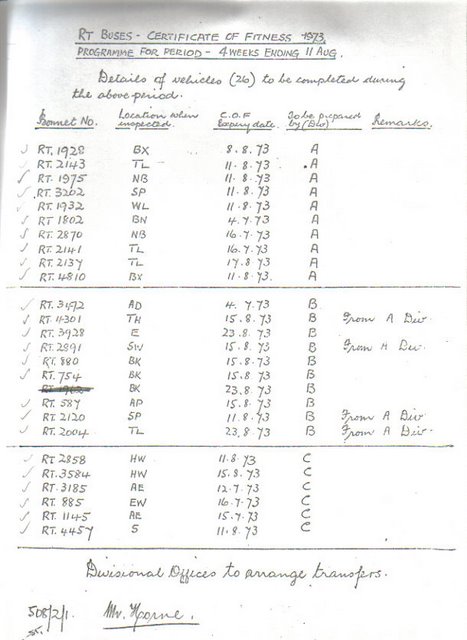 RT BUSES - CERTIFICATE OF FITNESS 1973.
PROGRAMME FOR PERIOD - 4 WEEKS ENDING 11 AUG.
Details of vehicles (26) to be completed during
the above period.
Bonnet No. Location when inspected. C.O.F Expiry date. To be prepared by (Div) Remarks.
✓ RT. 1928 BX 8.8.73 A
✓ RT. 2143 TL 11.8.73 A
✓ RT. 1975 NB 11.8.73 A
✓ RT. 3202 SP 11.8.73 A
✓ RT. 1932 WL 11.8.73 A
✓ RT 1802 BN 4.7.73 A
✓ RT. 2870 NB 16.7.73 A
✓ RT. 2141 TL 16.7.73 A
✓ RT. 2137 TL 17.8.73 A
✓ RT. 4810 BX 11.8.73. A
✓ RT. 3472 AD 4.7.73 B
✓ RT. 4301 TH 15.8.73 B From A Div.
✓ RT. 3928 E 23.8.73 B
✓ RT. 2891 SW 15.8.73 B From A Div.
✓ RT. 880 BK 15.8.73 B
✓ RT. 754 BK 15.8.73 B
BK 23.8.73 B
✓ RT. 587 AP 15.8.73 B
✓ RT. 2120 SP 11.8.73 B From A Div
✓ RT. 2004 TL 23.8.73 B From A Div.
✓ RT 2858 HW 11.8.73 C
✓ RT. 3584 HW 15.8.73 C
✓ RT. 3185 AE 12.7.73 C
✓ RT. 885 EW 16.7.73 C
✓ RT. 1145 AE 15.7.73 C
✓ RT. 4457 S 11.8.73 C
Divisional Offices to arrange transfers.
508/2/1. Mr. Horne.